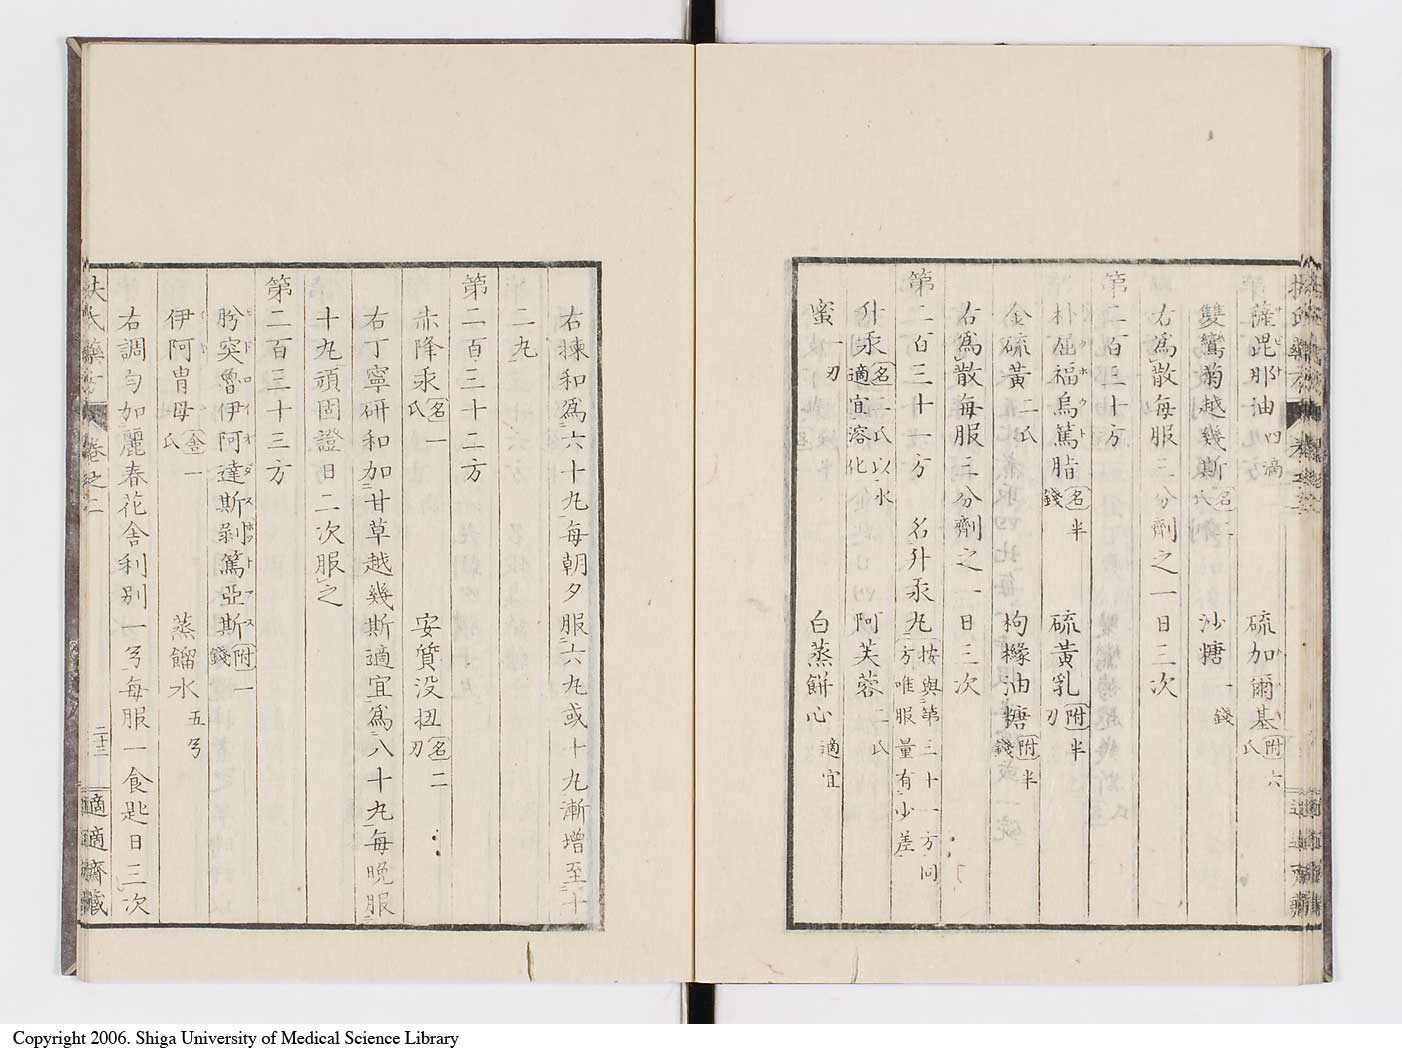 薩毘那油四滴 硫加爾基附六氏
雙鸞菊越幾斯名二氏 沙糖一錢
右爲散每服三分劑之一日三次
第二百三十方
朴屈福烏篤脂名半錢 硫黃乳附半刃
金硫黃二氏 枸櫞油糖附半錢
右爲散每服三分劑之一日三次
第二百三十一方 名升汞丸按與第三十一方同方唯服量有少差
升汞名一氏以水適宜溶化 阿芙蓉二氏
蜜一刃 白蒸餅心適宜
右揀和爲六十丸每朝夕服六丸或十丸漸增至十
二丸
第二百三十二方
赤降汞名一氏 安質没扭名二刃
右丁寧研和加甘草越幾斯適宜爲八十丸每晚服
十丸頑固證日二次服之
第二百三十三方
肹突魯伊阿達斯剝篤亞斯附一錢
伊阿胄母舎一氏 蒸餾水五弓
右調勻如麗春花舍利別一弓每服一食匙日三次
扶氏 卷之二 二十三 適適齋藏
Copyright 2006. Shiga University of Medical Science Library